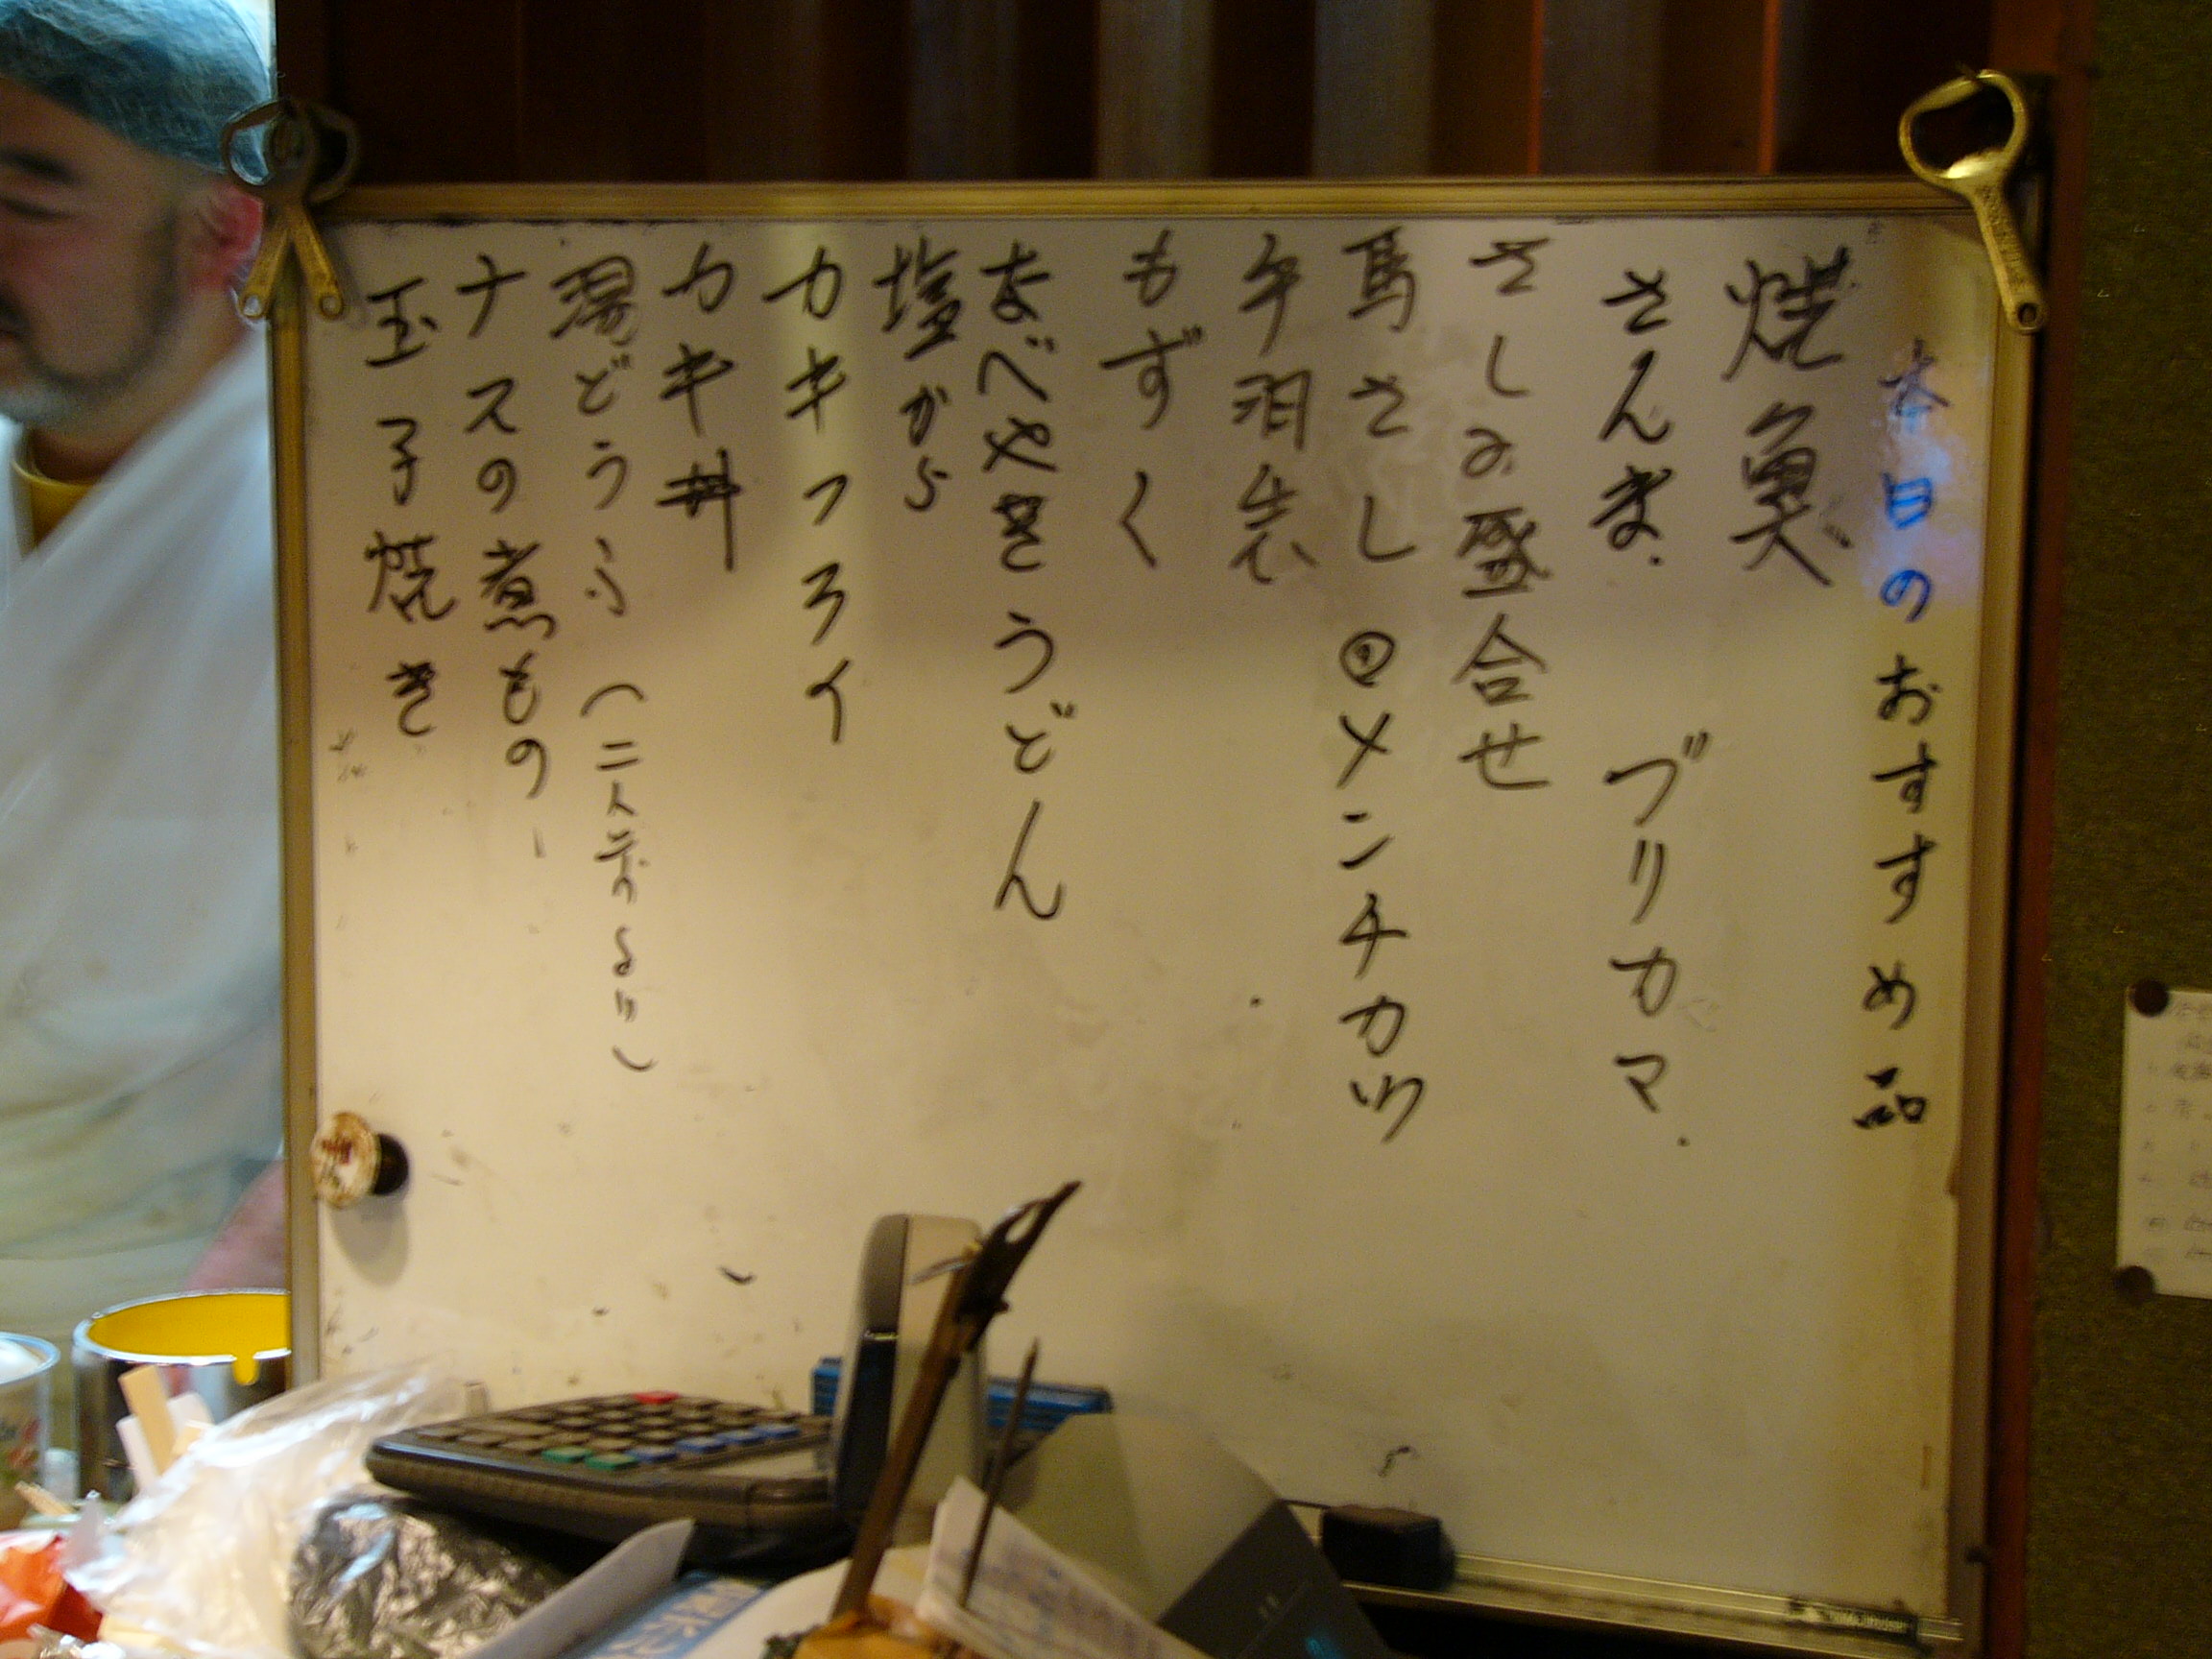 本日のおすすめ品
焼魚
さんま. ブリカマ.
さしみ盛合せ
馬さし ◎メンチカツ
もずく
なべやきうどん
塩から
カキフライ
カキ丼
湯どうふ (二人前より)
ナスの煮もの
玉子焼き